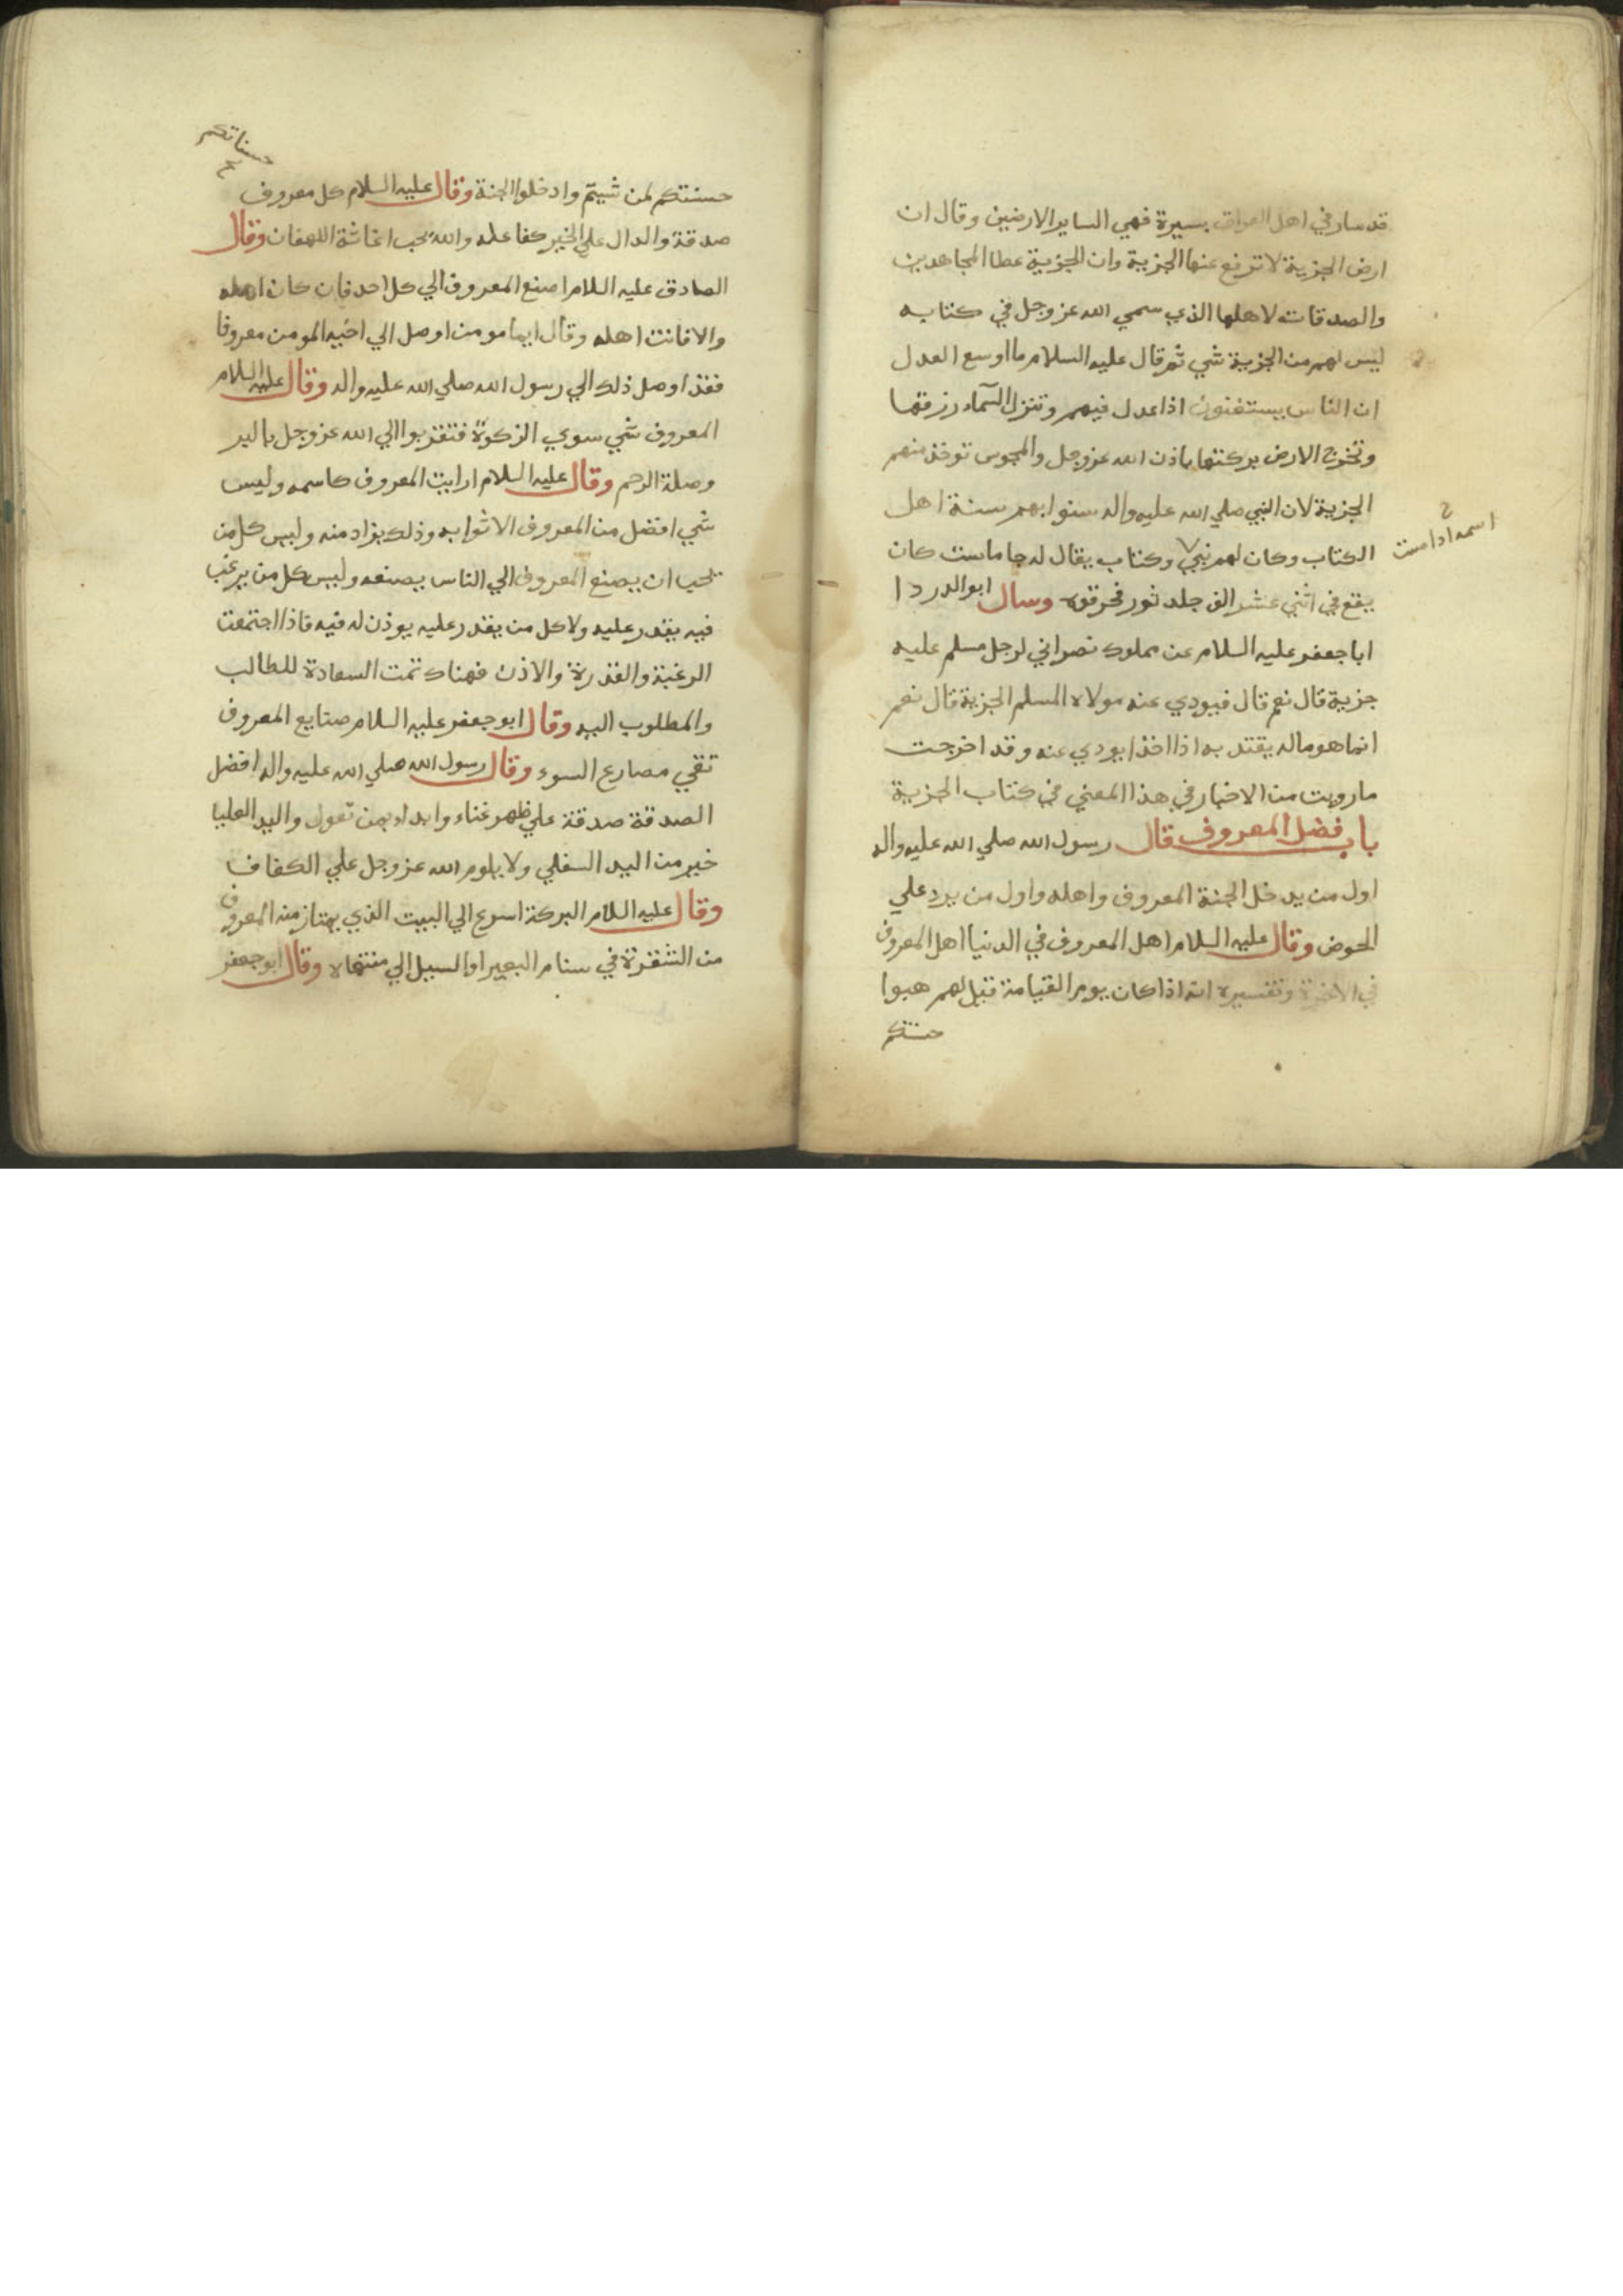 قد سار في اهل العراق بسيرة فهي الساير الارضين وقال ان
ارض الجزية لا ترفع عنها الجزية وان الجزية عطا المجاهدين
والصدقات لاهلها الذي سمي الله عز وجل في كتابه
ليس لهم من الجزية شي ثم قال عليه السلام ما اوسع العدل
ان الناس يستغنون اذا عدل فيهم وتنزل السمآء رزقها
وتخرج الارض بركتها باذن الله عز وجل والمجوس توخذ منهم
الجزية لان النبي صلي الله عليه واله سنوا بهم سنة اهل
الكتاب وكان لهم نبي وكتاب يقال له جاماست كان
اسمه اداست
يقع في اثني عشر الف جلد ثور فحرقوه وسال ابو الدردا
ابا جعفر عليه السلام عن مملوك نصراني لرجل مسلم عليه
جزية قال نعم قال فيودي عنه مولاه المسلم الجزية قال نعم
انما هو ماله يفتد به اذا اخذ يودي عنه وقد اخرجت
ما رويت من الاخبار في هذا المعني في كتاب الجزية
باب فضل المعروف قال رسول الله صلي الله عليه واله
اول من يدخل الجنة المعروف واهله واول من يرد علي
الحوض وقال عليه السلام اهل المعروف في الدنيا اهل المعروف
في الاخرة وتفسيره انه اذا كان يوم القيامة قيل لهم هبوا
حسنتكم
حسناتكم
حسنتكم لمن شيتم وادخلوا الجنة وقال عليه السلام كل معروف
صدقة والدال علي الخير كفاعله والله يحب اغاثة اللهفان وقال
الصادق عليه السلام اصنع المعروف الي كل احد فان كان اهله
والا فانت اهله وقال ايما مومن اوصل الي اخيه المومن معروفا
فقد اوصل ذلك الي رسول الله صلي الله عليه واله وقال عليه السلام
المعروف شي سوي الزكوة فتقربوا الي الله عز وجل بالبر
وصلة الرحم وقال عليه السلام ارايت المعروف كاسمه وليس
شي افضل من المعروف الا ثوابه وذلك يزاد منه وليس كل من
يحب ان يصنع المعروف الي الناس يصنعه وليس كل من يرغب
فيه يقدر عليه ولا كل من يقدر عليه يوذن له فيه فاذا اجتمعت
الرغبة والقدرة والاذن فهناك تمت السعادة للطالب
والمطلوب اليه وقال ابو جعفر عليه السلام صنايع المعروف
تقي مصارع السوء وقال رسول الله صلي الله عليه واله افضل
الصدقة صدقة علي ظهر غناء وابداء بمن تعول واليد العليا
خير من اليد السفلي ولا يلوم الله عز وجل علي الكفاف
وقال عليه السلام البركة اسرع الي البيت الذي يمتاز منه المعروف
من الشفرة في سنام البعير او السيل الي منتهاه وقال ابو جعفر